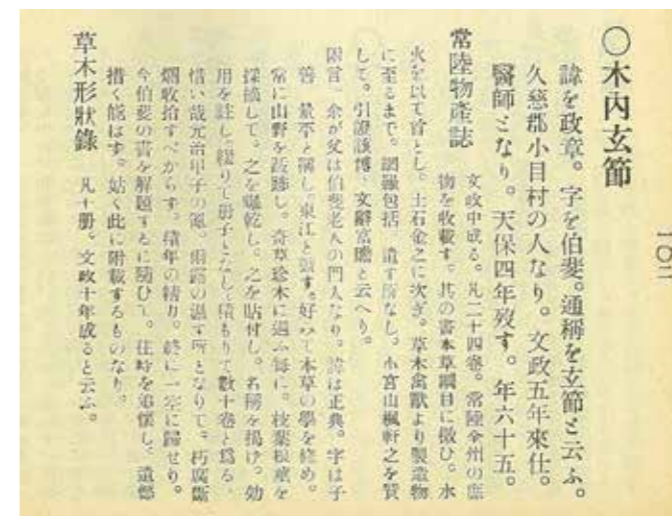 一〇二
〇木内玄節
諱を政章。字を伯斐。通稱を玄節と云ふ。
久慈郡小目村の人なり。文政五年來仕。
醫師となり。天保四年歿す。年六十五。
常陸物產誌 文政中成る。凡二十四卷。常陸全州の產
物を收載す。其の書本草綱目に倣ひ。水
火を以て首とし。土石金之に次ぎ。草木禽獸より製造物
に至るまで。網羅包括 遺す所なし。小宮山楓軒之を贊
して。引證該博 文辭富贍と云へり。
附言 余が父は伯斐老人の門人なり。諱は正典。字は子
善 景亭と稱し。東江と號す。好んで本草の學を修め。
常に山野を跋跡し。奇草珍木に遇ふ每に。枝葉根莖を
採摘して。之を曝乾し。之を貼付し。名稱を揭け。効
用を註し。綴りて册子となし。積もりて數十卷と爲る。
惜い哉元治甲子の亂。雨露の濕す所となりて。朽腐斷
爛收拾すべからす。積年の精力。終に一空に歸せり。
今伯斐の書を解題するに隨ひて。往時を追懷し。遺憾
措く能はす。姑く此に附載するものなり。
草木形狀錄 凡十册。文政十年成ると云ふ。